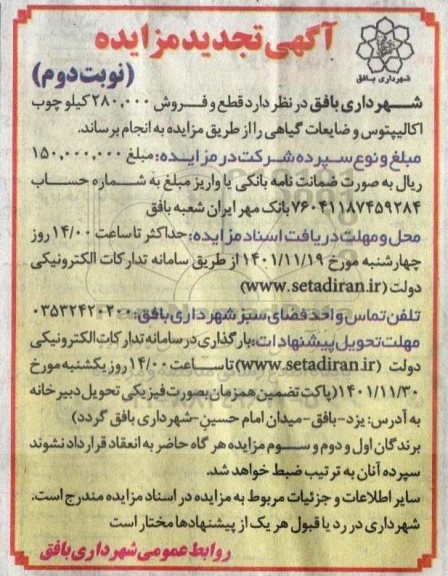 آگهی تجدید مزایده
شهرداری بافق
(نوبت دوم)
شهرداری بافق در نظر دارد قطع و فروش ۲۸۰,۰۰۰ کیلو چوب
اکالیپتوس و ضایعات گیاهی را از طریق مزایده به انجام برساند.
مبلغ و نوع سپرده شرکت در مزایده: مبلغ ۱۵۰,۰۰۰,۰۰۰
ریال به صورت ضمانت نامه بانکی یا واریز مبلغ به شماره حساب
۷۶۰۴۱۱۸۷۴۵۹۲۸۴ بانک مهر ایران شعبه بافق
محل و مهلت دریافت اسناد مزایده: حداکثر تا ساعت ۱۴/۰۰ روز
چهارشنبه مورخ ۱۴۰۱/۱۱/۱۹ از طریق سامانه تدارکات الکترونیکی
دولت (www.setadiran.ir)
تلفن تماس واحد فضای سبز شهرداری بافق: ۰۳۵۳۲۴۲۰۲۰۰
مهلت تحویل پیشنهادات: بارگذاری در سامانه تدارکات الکترونیکی
دولت (www.setadiran.ir) تا ساعت ۱۴/۰۰ روز یکشنبه مورخ
۱۴۰۱/۱۱/۳۰ (پاکت تضمین همزمان بصورت فیزیکی تحویل دبیرخانه
به آدرس: یزد-بافق-میدان امام حسین-شهرداری بافق گردد)
برندگان اول و دوم و سوم مزایده هر گاه حاضر به انعقاد قرارداد نشوند
سپرده آنان به ترتیب ضبط خواهد شد.
سایر اطلاعات و جزئیات مربوط به مزایده در اسناد مزایده مندرج است.
شهرداری در رد یا قبول هر یک از پیشنهادها مختار است
روابط عمومی شهرداری بافق